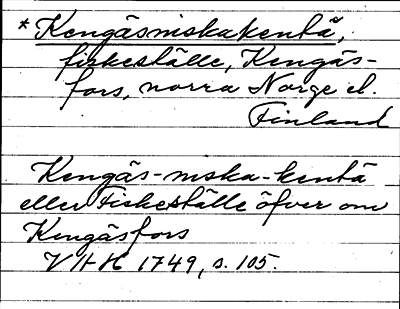 * Kengäsniskakentä,
fiskeställe, Kengäs-
fors, norra Norge el.
Finland
Kengäs-niska-kentä
eller Fiskeställe öfver om
Kengäsfors
VHH 1749, s. 105.